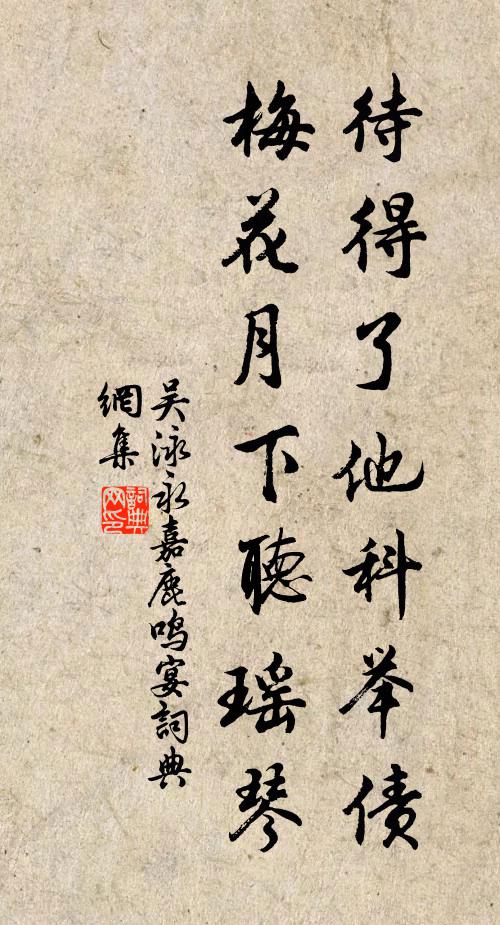 待得了他科举债
梅花月下聽瑶琴
吴泳永嘉鹿鸣宴詞典
網集
詞典
网印